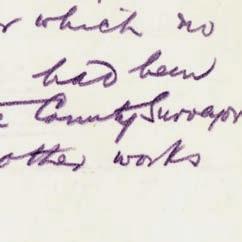 which no
had been
County Surveyor
other works